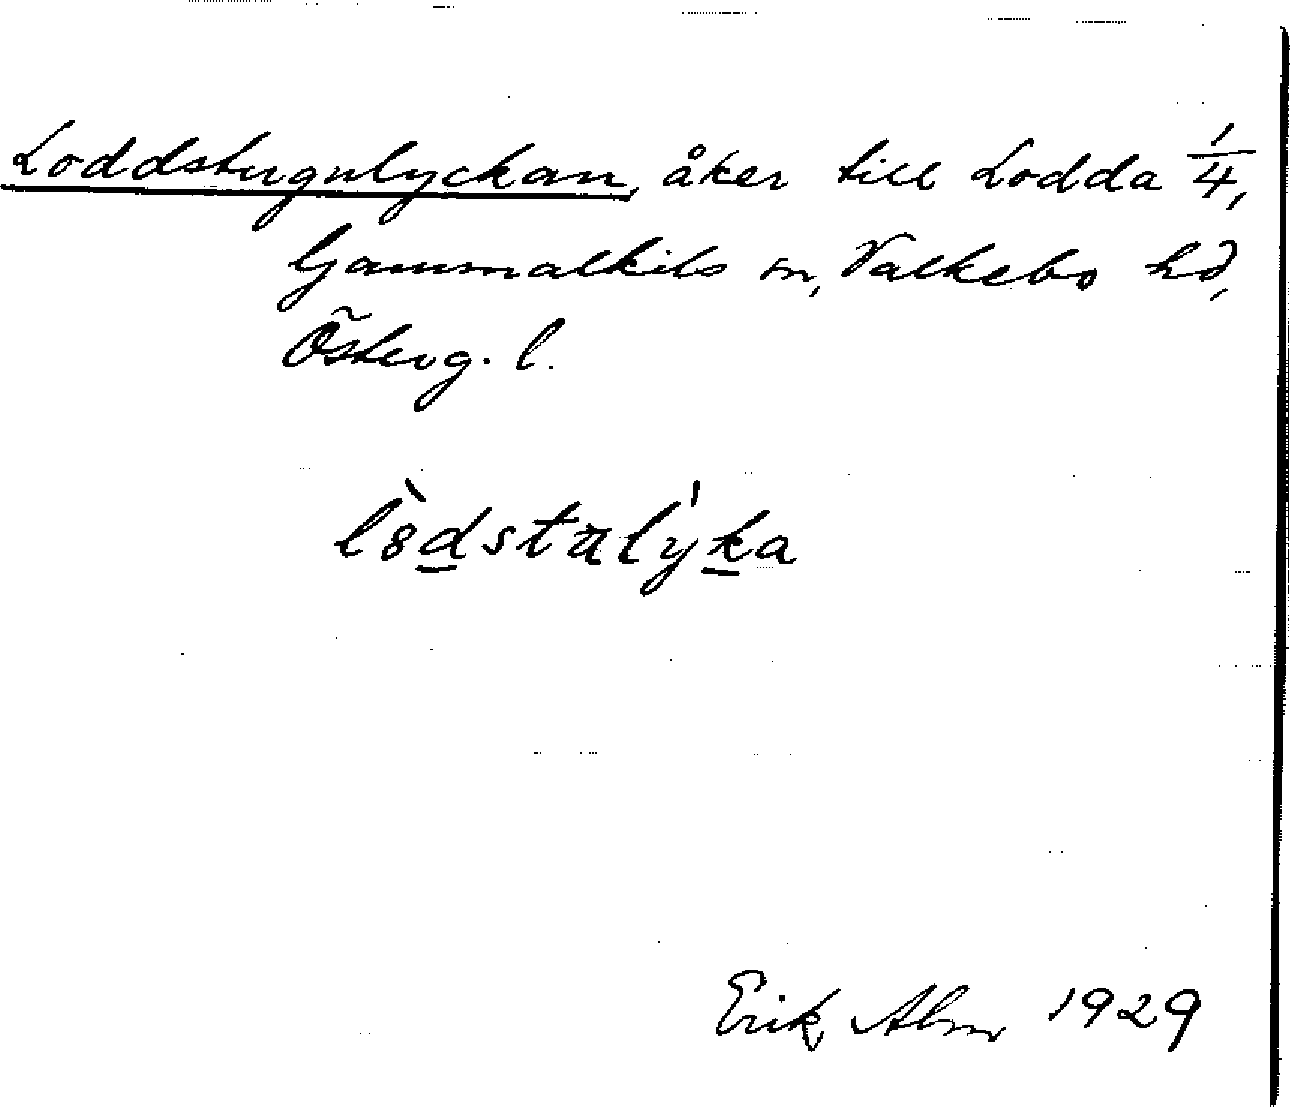 Loddstugulyckan, åker till Lodda 1/4,
Gammalkils sn, Valkebo hd,
Österg. l.
lo̍dstulyka
Erik Alm 1929